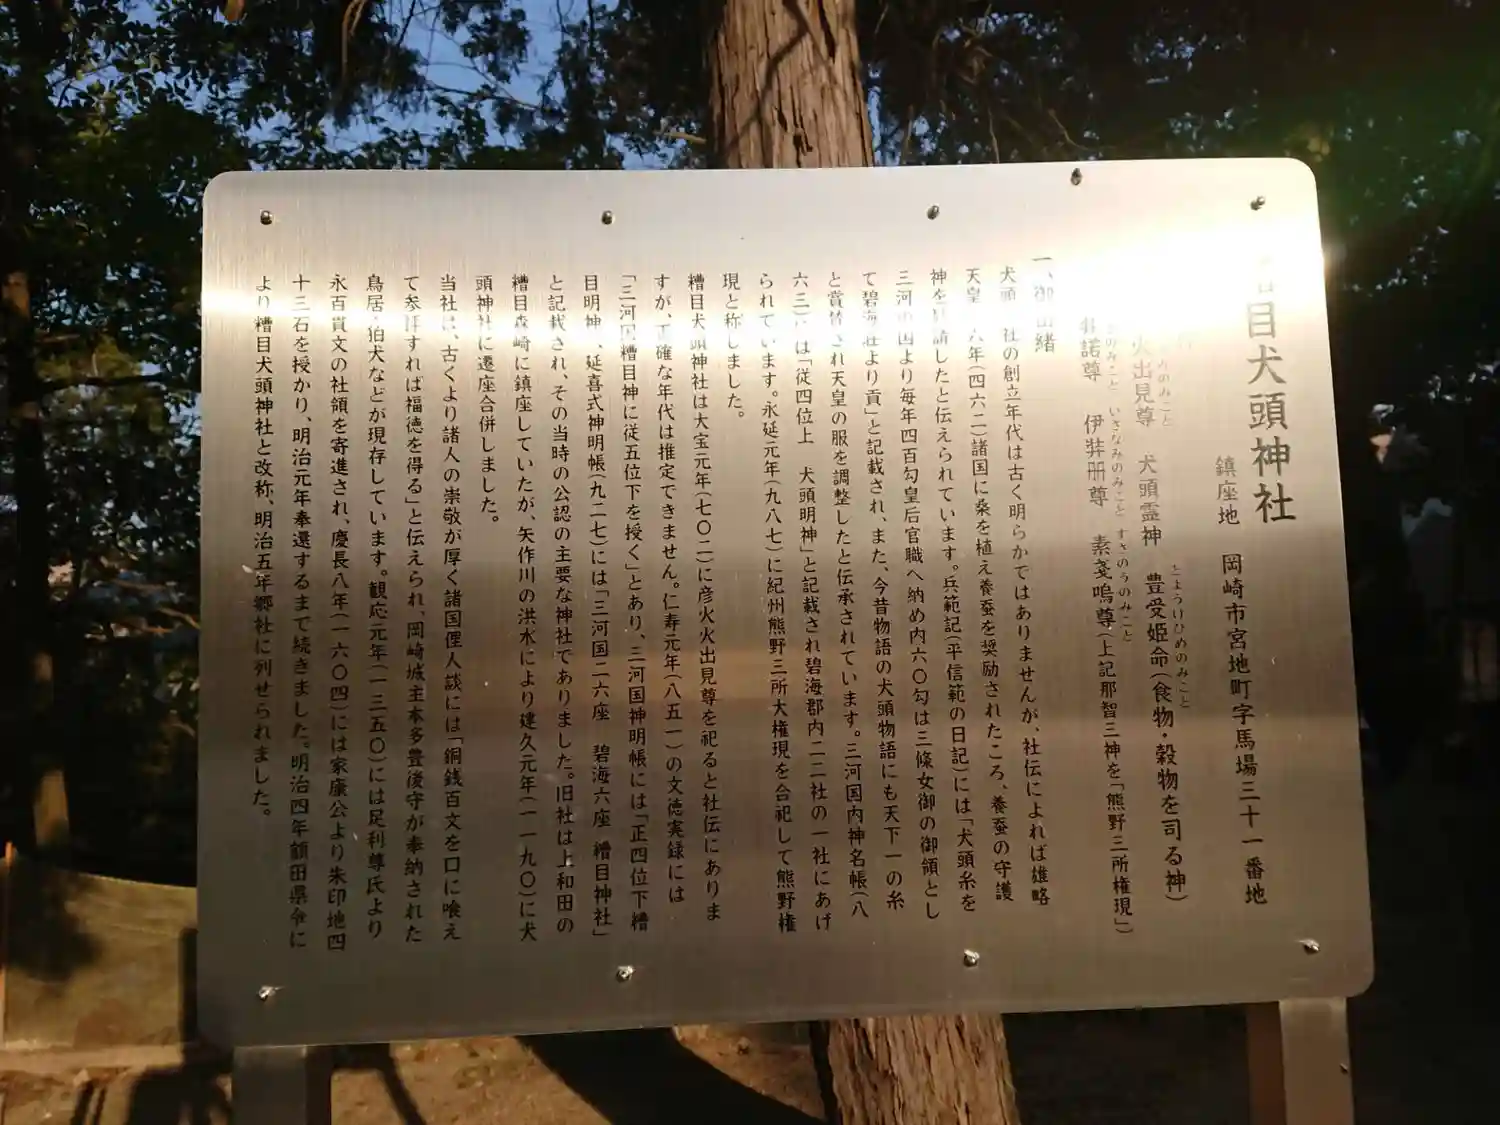 目犬頭神社
鎮座地　岡崎市宮地町字馬場三十一番地
火出見尊　犬頭霊神　豊受姫命(食物・穀物を司る神)
とようけひめのみこと
諾尊　伊弉册尊　素戔嗚尊(上記那智三神を「熊野三所権現」)
のみこと　いざなみのみこと　すさのうのみこと
一、御由緒
犬頭　社の創立年代は古く明らかではありませんが、社伝によれば雄略
天皇　六年(四六二)諸国に桑を植え養蚕を奨励されたころ、養蚕の守護
神を勧請したと伝えられています。兵範記(平信範の日記)には「犬頭糸を
三河の国より毎年四百勾皇后官職へ納め内六〇勾は三條女御の御領とし
て碧海荘より貢」と記載され、また、今昔物語の犬頭物語にも天下一の糸
と賞賛され天皇の服を調整したと伝承されています。三河国内神名帳(八
六三)には「従四位上　犬頭明神」と記載され碧海郡内二二社の一社にあげ
られています。永延元年(九八七)に紀州熊野三所大権現を合祀して熊野権
現と称しました。
糟目犬頭神社は大宝元年(七〇二)に彦火火出見尊を祀ると社伝にありま
すが、正確な年代は推定できません。仁寿元年(八五一)の文徳実録には
「三河国糟目神に従五位下を授く」とあり、三河国神明帳には「正四位下糟
目明神」、延喜式神明帳(九二七)には「三河国二六座　碧海六座　糟目神社」
と記載され、その当時の公認の主要な神社でありました。旧社は上和田の
糟目森崎に鎮座していたが、矢作川の洪水により建久元年(一一九〇)に犬
頭神社に遷座合併しました。
当社は、古くより諸人の崇敬が厚く諸国俚人談には「銅銭百文を口に喰え
て参拝すれば福徳を得る」と伝えられ、岡崎城主本多豊後守が奉納された
鳥居・狛犬などが現存しています。観応元年(一三五〇)には足利尊氏より
永百貫文の社領を寄進され、慶長八年(一六〇四)には家康公より朱印地四
十三石を授かり、明治元年奉還するまで続きました。明治四年額田県令に
より糟目犬頭神社と改称、明治五年郷社に列せられました。